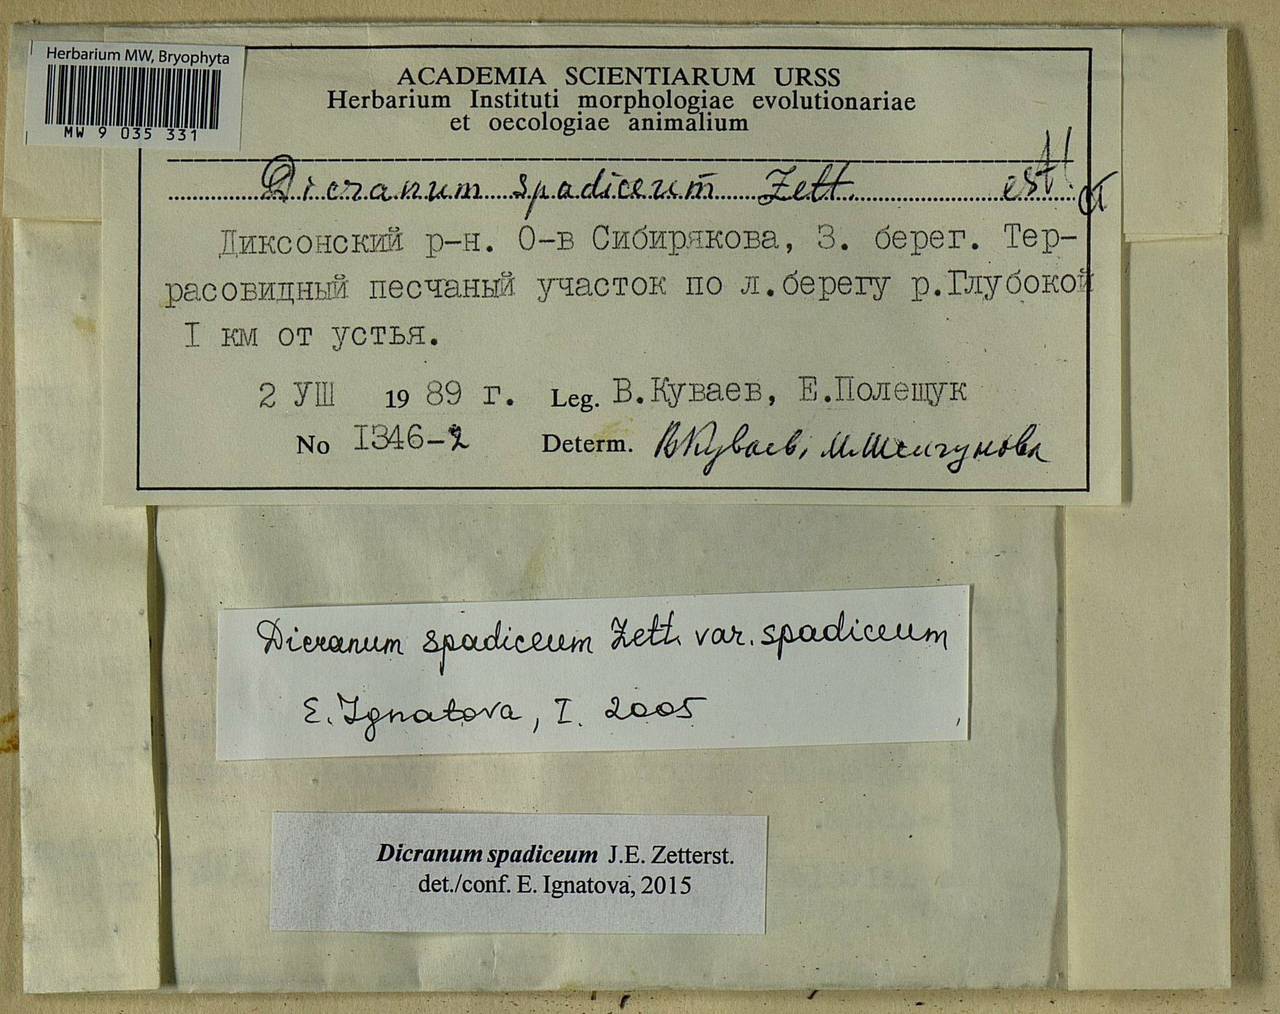 Herbarium MW, Bryophyta
MW 9 035 331
ACADEMIA SCIENTIARUM URSS
Herbarium Instituti morphologiae evolutionariae
et oecologiae animalium
Dicranum spadiceum Zett. est!
Диксонский р-н. О-в Сибирякова, З. берег. Тер-
расовидный песчаный участок по л.берегу р.Глубокой
I км от устья.
2 УШ 1989 г. Leg. В.Куваев, Е.Полещук
No I346-2 Determ. В Куваев, М.Шелгунова
Dicranum spadiceum Zett. var. spadiceum
E. Ignatova, I. 2005
Dicranum spadiceum J.E. Zetterst.
det./conf. E. Ignatova, 2015